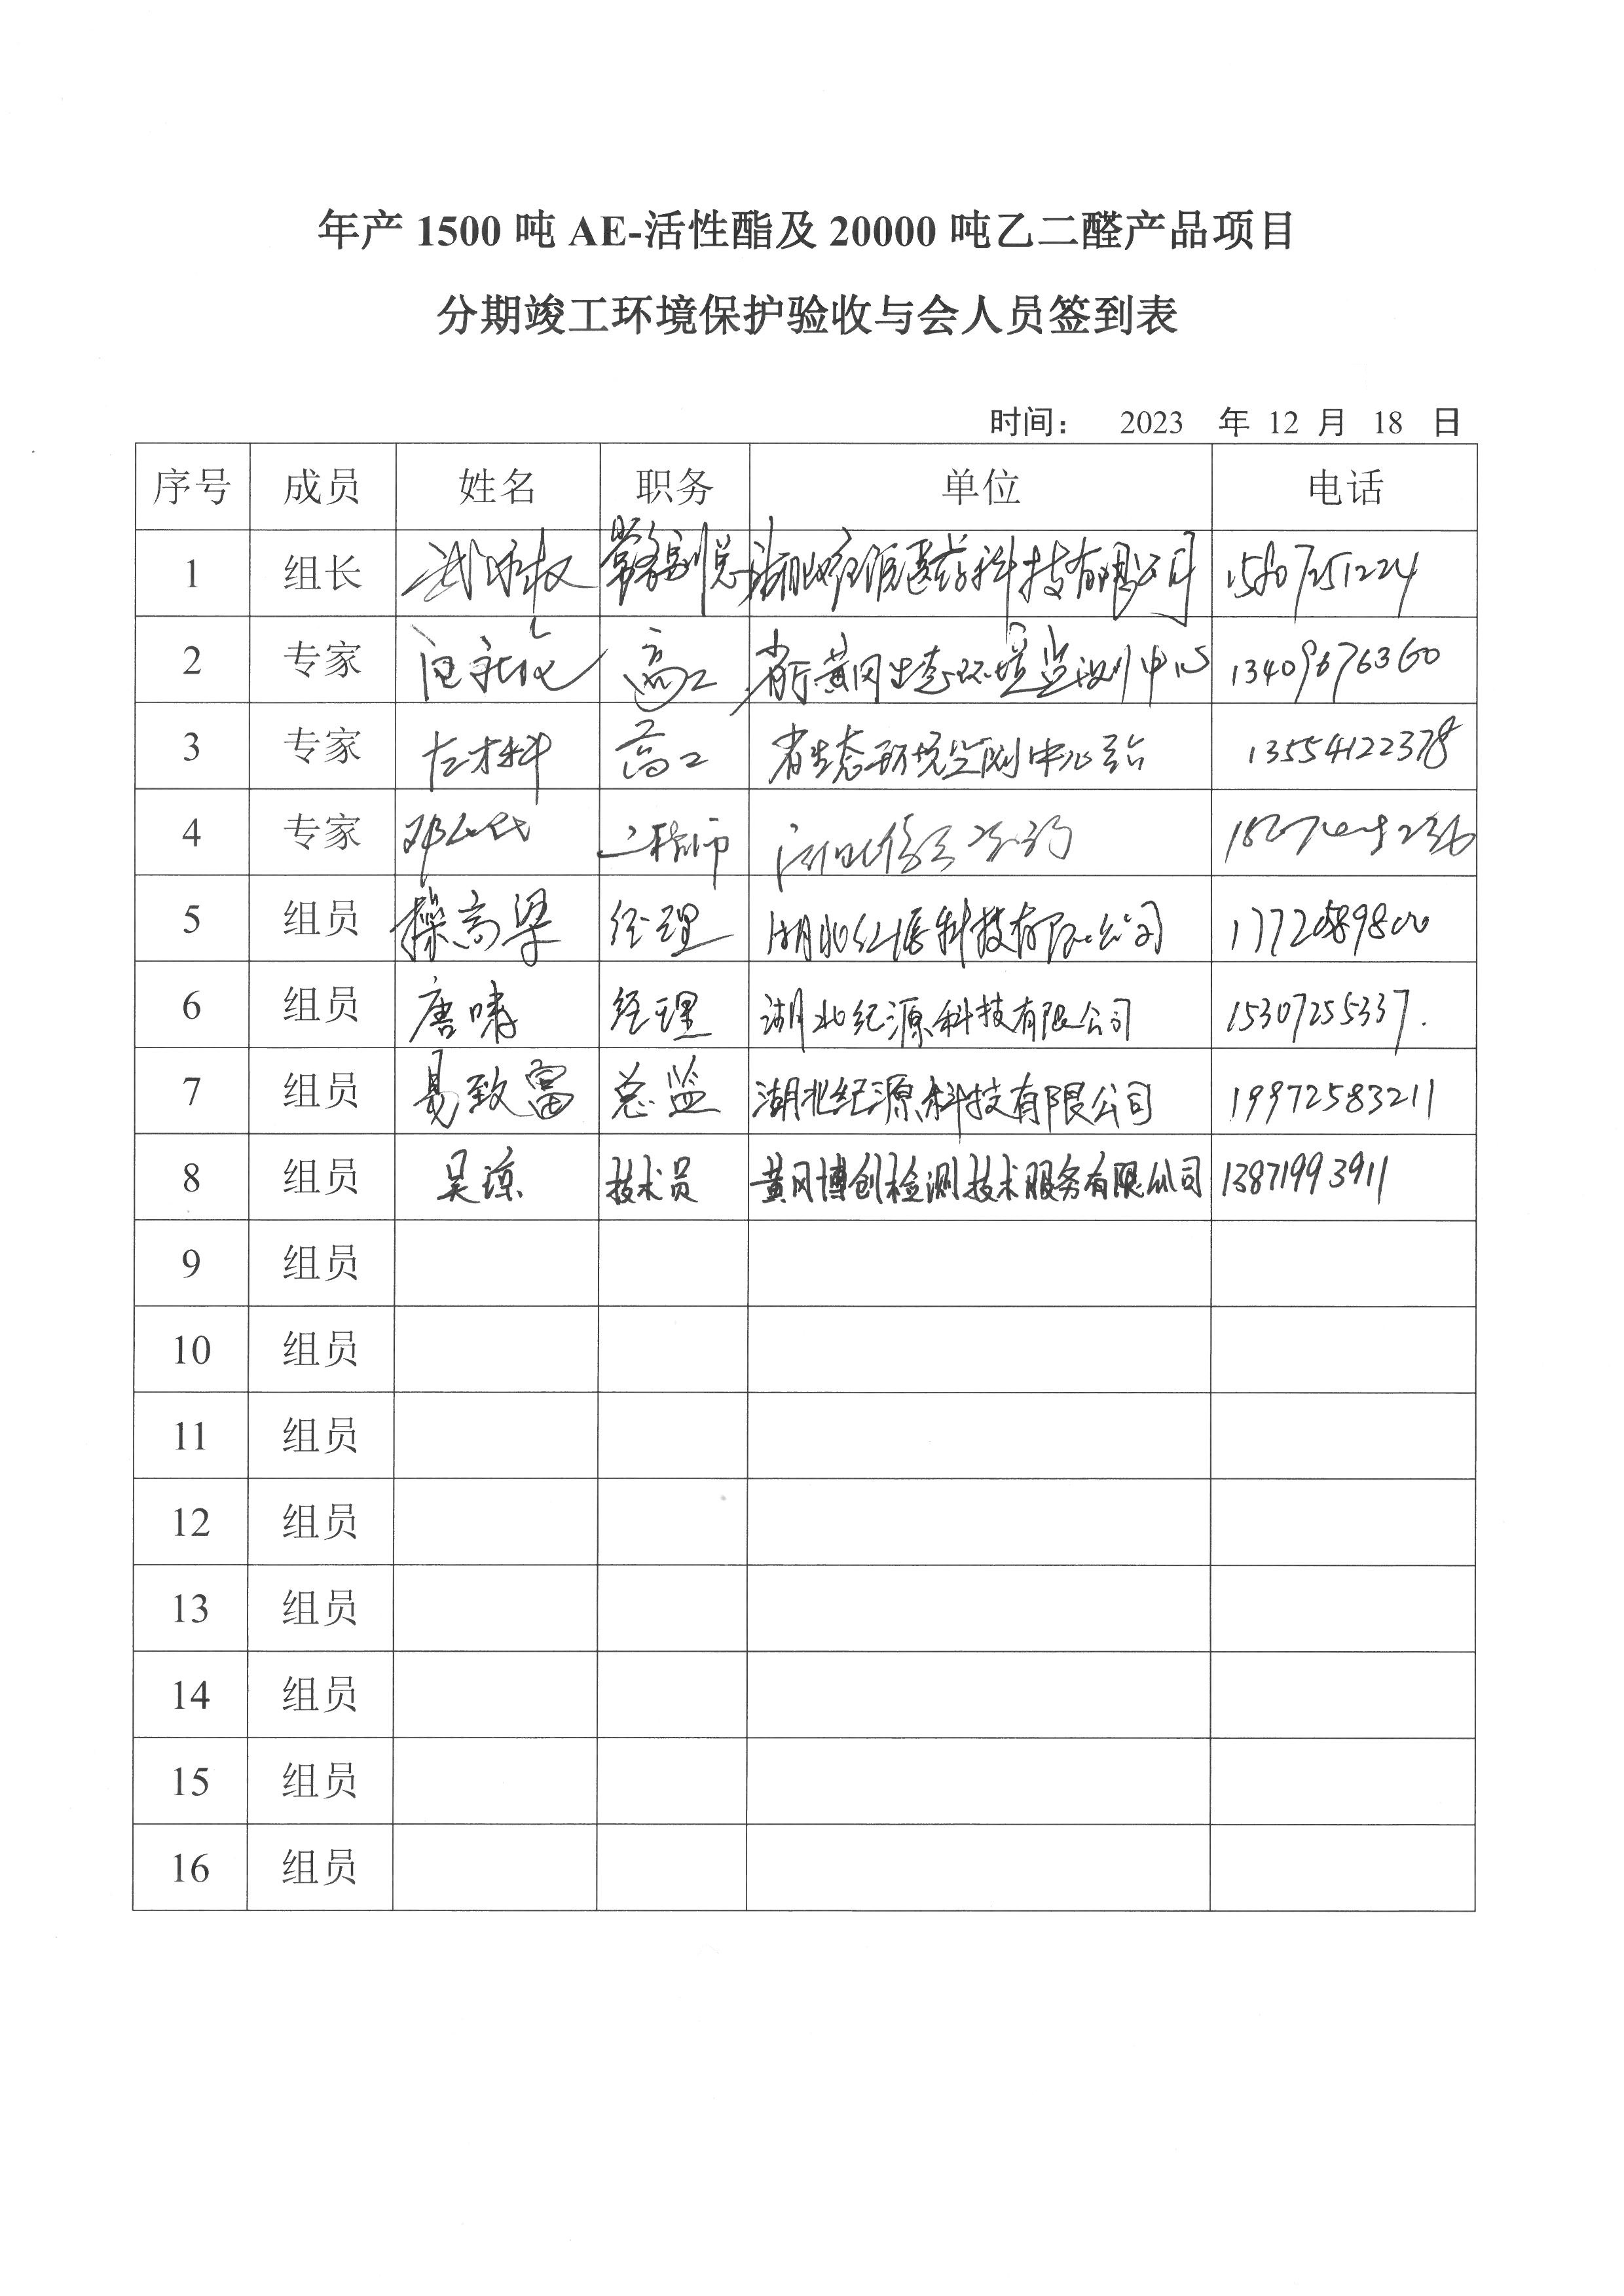 年产 1500 吨 AE-活性酯及 20000 吨乙二醛产品项目
分期竣工环境保护验收与会人员签到表
时间： 2023 年 12 月 18 日
序号 成员 姓名 职务 单位 电话
1 组长 常务副总 医药科技有限公司
2 专家 高工 省厅黄冈生态环境监测中心 13409676360
3 专家 左才科 高工 省生态环境监测中心站 13554122378
4 专家 工程师
5 组员 操高梁 经理 湖北 科技有限公司
6 组员 唐啸 经理 湖北纪源科技有限公司 15307255337.
7 组员 易致富 总监 湖北纪源科技有限公司 19972583211
8 组员 吴琼 技术员 黄冈博创检测技术服务有限公司 13871993911
9 组员
10 组员
11 组员
12 组员
13 组员
14 组员
15 组员
16 组员